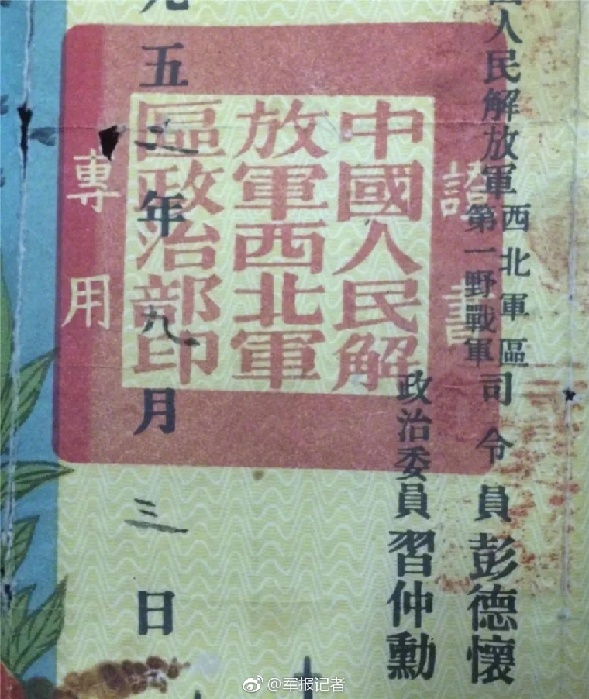 人民解放軍西北軍區
第一野戰軍
司令員彭德懷
政治委員習仲勳
證書
中國人民解
放軍西北軍
區政治部印
專用
五年九月三日
军报记者